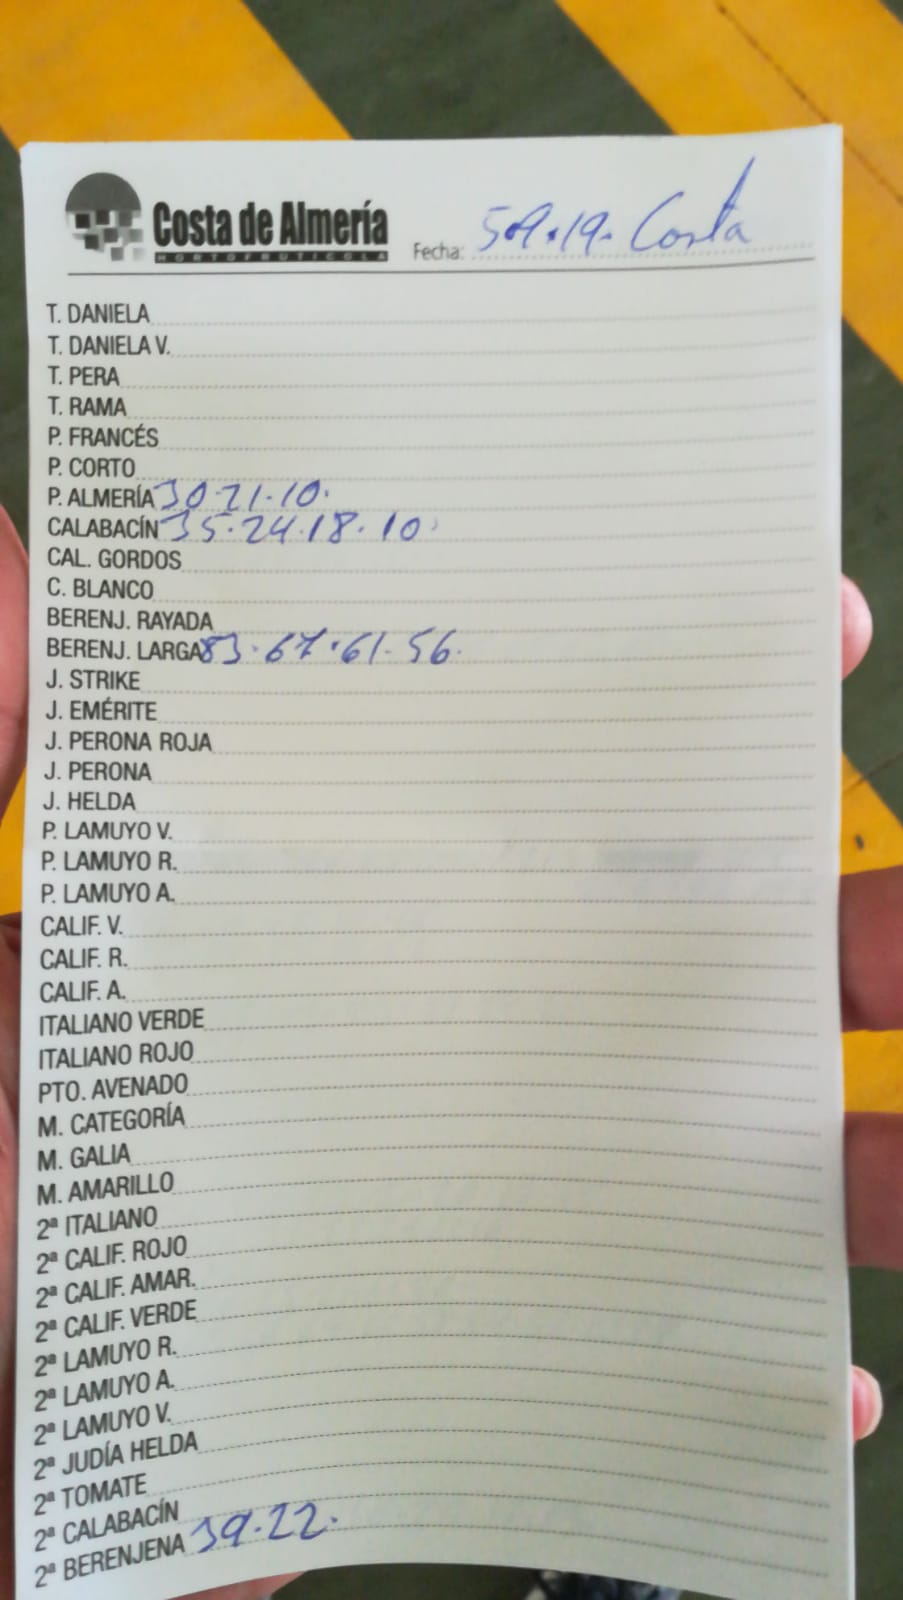 Costa de Almería
HORTOFRUTICOLA
Fecha: 5·9·19· Costa
T. DANIELA
T. DANIELA V.
T. PERA
T. RAMA
P. FRANCÉS
P. CORTO
P. ALMERÍA 30·21·10·
CALABACÍN 35·24·18·10
CAL. GORDOS
C. BLANCO
BERENJ. RAYADA
BERENJ. LARGA 83·67·61·56·
J. STRIKE
J. EMÉRITE
J. PERONA ROJA
J. PERONA
J. HELDA
P. LAMUYO V.
P. LAMUYO R.
P. LAMUYO A.
CALIF. V.
CALIF. R.
CALIF. A.
ITALIANO VERDE
ITALIANO ROJO
PTO. AVENADO
M. CATEGORÍA
M. GALIA
M. AMARILLO
2ª ITALIANO
2ª CALIF. ROJO
2ª CALIF. AMAR.
2ª CALIF. VERDE
2ª LAMUYO R.
2ª LAMUYO A.
2ª LAMUYO V.
2ª JUDÍA HELDA
2ª TOMATE
2ª CALABACÍN
2ª BERENJENA 39·22·